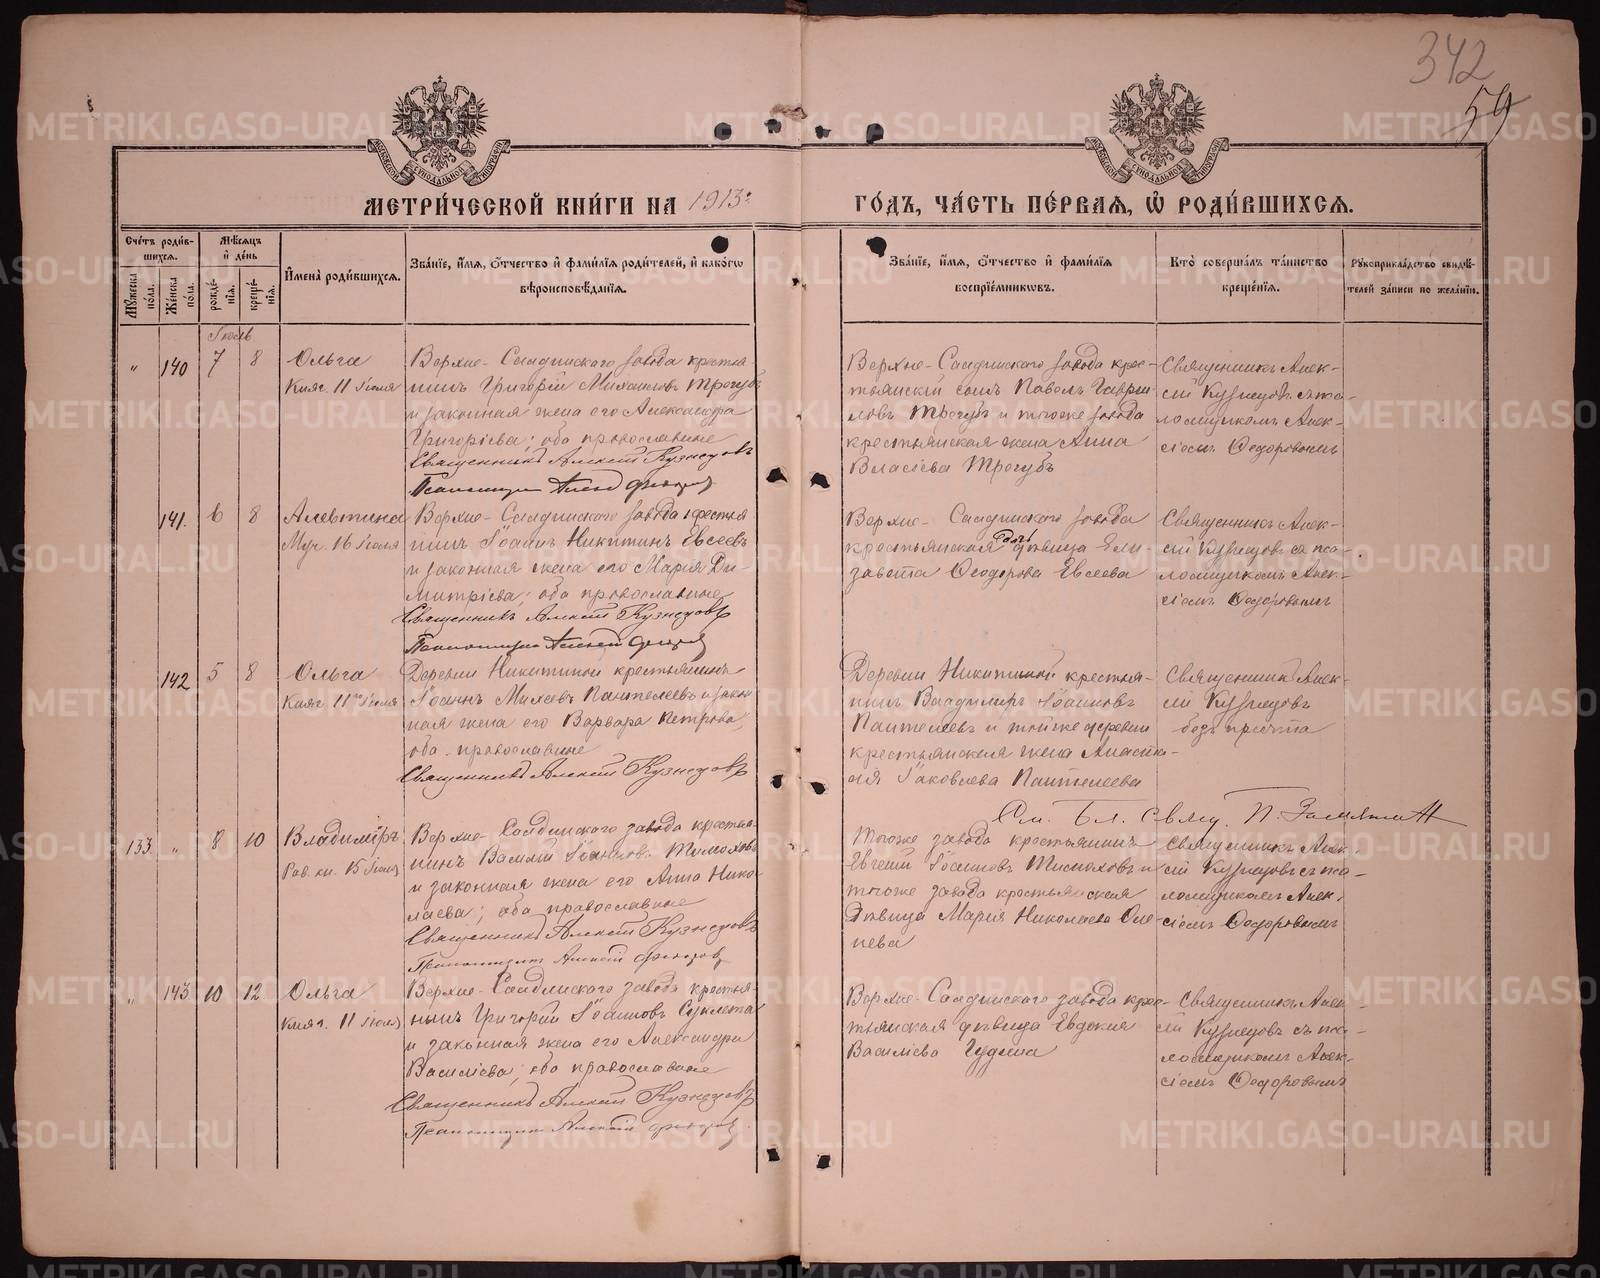 342
59
МЕТРИ́ЧЕСКОЙ КНИ́ГИ НА 1913:
ГО́ДЪ, ЧА́СТЬ ПЕ́РВАѦ, Ѽ РОДИ́ВШИХСѦ.
Сче́тъ роди́в-
шихсѧ.
Мѣ́сѧцъ
и҆ де́нь
Мꙋ́жеска по́ла.
Же́нска по́ла.
рожде́-нїѧ.
креще́-нїѧ.
И҆мена̀ роди́вшихсѧ.
Зва́нїе, и҆́мѧ, ѻ҆́тчество и҆ фами́лїѧ роди́телей, и҆ како́гѡ
вѣроисповѣ́данїѧ.
Зва́нїе, и҆́мѧ, ѻ҆́тчество и҆ фами́лїѧ
воспрїе́мникѡвъ.
Кто̀ соверша́лъ та́инство
креще́нїѧ.
Рꙋкоприкла́дство свидѣ́-
телей за́писи по жела́нїю.
Іюль
" 140 7 8 Ольга
Княг. 11 Іюля
Верхне-Салдинскаго завода крестья-
нинъ Григорій Михаиловъ Трегубъ
и законная жена его Александра
Григоріева; оба православные
Священникъ Алексій Кузнецовъ
Псаломщикъ Алексій
Верхне-Салдинскаго завода крес-
тьянскій сынъ Павелъ Гаврии-
ловъ Трегубъ и тогоже завода
крестьянская жена Анна
Власіева Трегубъ
Священникъ Алек-
сій Кузнецовъ съ пса-
ломщикомъ Алек-
сіемъ Ѳедоровымъ
141. 6 8 Алевтина
Муч. 16 Іюля
Верхне-Салдинскаго завода крестья
нинъ Іоаннъ Никитинъ Евсеевъ
и законная жена его Марія Ди-
митріева; оба православные
Священникъ Алексій Кузнецовъ
Псаломщикъ Алексій
Верхне-Салдинскаго завода
крестьянская дочь дѣвица Ели-
завета Ѳеодорова Евсеева
Священникъ Алек-
сій Кузнецовъ съ пса-
ломщикомъ Алек-
сіемъ Ѳедоровымъ
142 5 8 Ольга
Княг. 11го Іюля
Деревни Никитиной крестьянинъ
Іоаннъ Михеевъ Пантелеевъ и закон
ная жена его Варвара Петрова,
оба православные
Священникъ Алексій Кузнецовъ
Деревни Никитиной крестья-
нинъ Владимиръ Іоанновъ
Пантелеевъ и тойже деревни
крестьянская жена Анаста-
сія Іаковлева Пантелеева
Священникъ Алек-
сій Кузнецовъ
безъ причта
133. " 8 10 Владиміръ
Рав. кн. 15 Іюля
Верхне-Салдинскаго завода крестья-
нинъ Василій Іоанновъ Тимоховъ
и законная жена его Анна Нико-
лаева; оба православные
Священникъ Алексій Кузнецовъ
Псаломщикъ Алексій
Тогоже завода крестьянинъ
Евгений Іоанновъ Тимоховъ и
тогоже завода крестьянская
дѣвица Марія Николаева
Священникъ Алек-
сій Кузнецовъ съ пса-
ломщикомъ Алек-
сіемъ Ѳедоровымъ
" 143 10 12 Ольга
Княг. 11 Іюля
Верхне-Салдинскаго завода крестья-
нинъ Григорій Іоанновъ
и законная жена его Александра
Василіева; оба православные
Священникъ Алексій Кузнецовъ
Псаломщикъ Алексій
Верхне-Салдинскаго завода крес-
тьянская дѣвица Евдокія
Василіева
Священникъ Алек-
сій Кузнецовъ съ пса-
ломщикомъ Алек-
сіемъ Ѳедоровымъ
METRIKI.GASO-URAL.RU